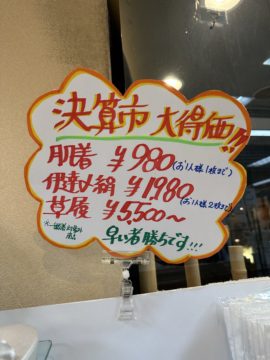 決算市 大得価!!
肌着 ¥980(お1人様1枚まで)
伊達〆 ¥1,980(お1人様2枚まで)
草履 ¥5,500〜
早い者勝ちです!!!